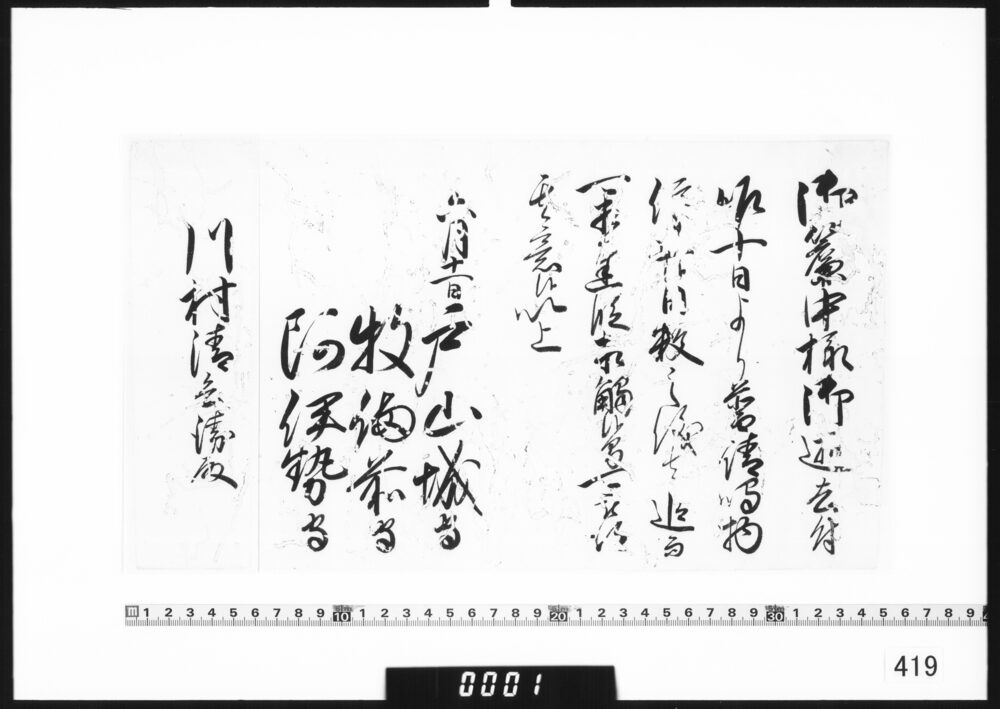 御簾中様御逝去付
昨十日より普請鳴物
停止候日数之儀者追而
可相達段最前相觸候
其意候以上
六月十一日
戸山城守
牧備前守
阿伊勢守
川村清兵衛殿
m 1 2 3 4 5 6 7 8 9 10 1 2 3 4 5 6 7 8 9 20 1 2 3 4 5 6 7 8 9 30 1 2 3 4 5 6 7 8 9
0001
419